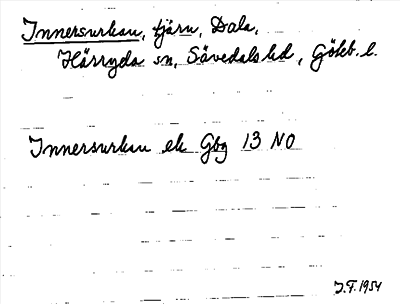 Innersurkau, tjärn, Dala,
Härryda sn, Sävedals hd, Göteb. l.
Innersurkau ek Gbg 13 NO
J.F. 1954